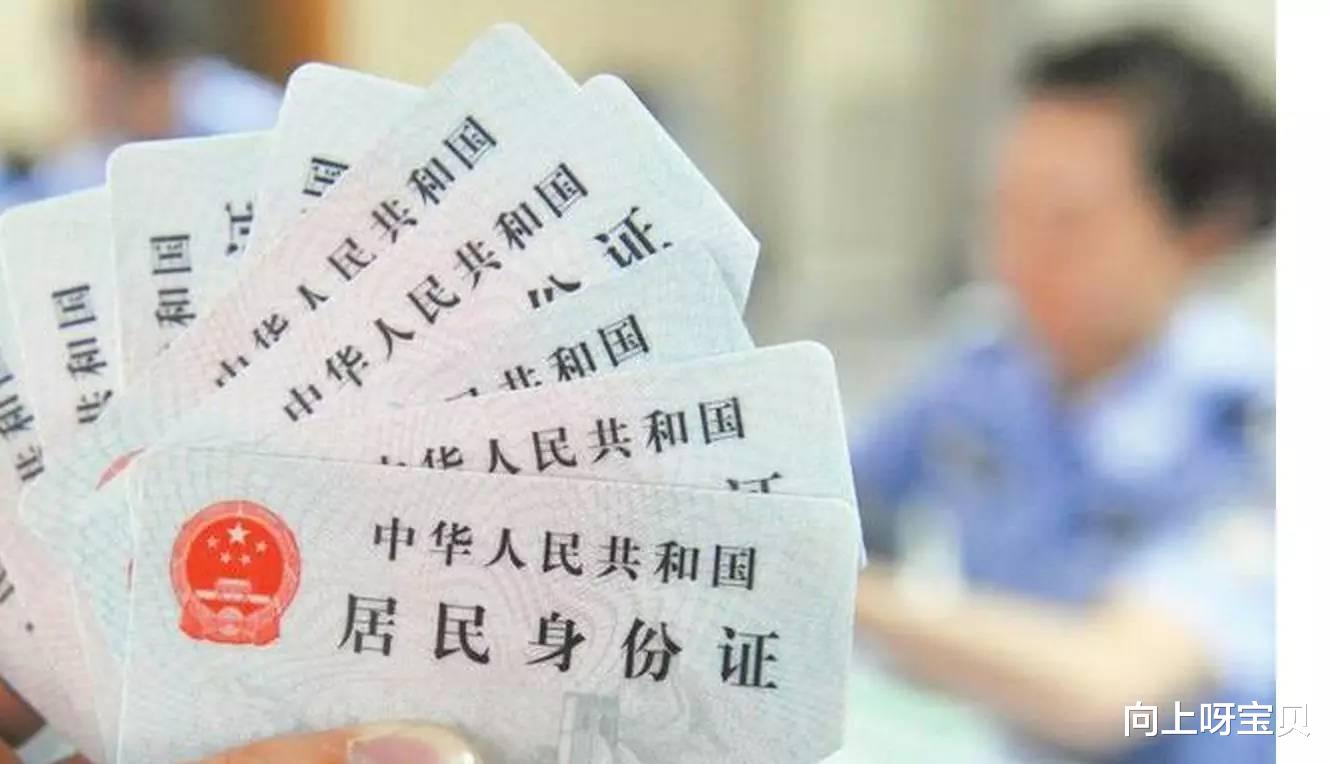 共和国
和国
证
国
中华人民共和国
中华人民共和国
份证
共和国
中华人民共和国
证
中华人民共和国
居民身份证
向上呀宝贝